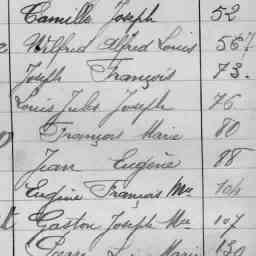 Camille Joseph 52
Wilfrid Alfred Louis 567
Joseph François 73.
Louis Jules Joseph 76
François Marie 80
Jean Eugène 88
Eugène François Mie 104
Gaston Joseph Mie 107
Marie 130